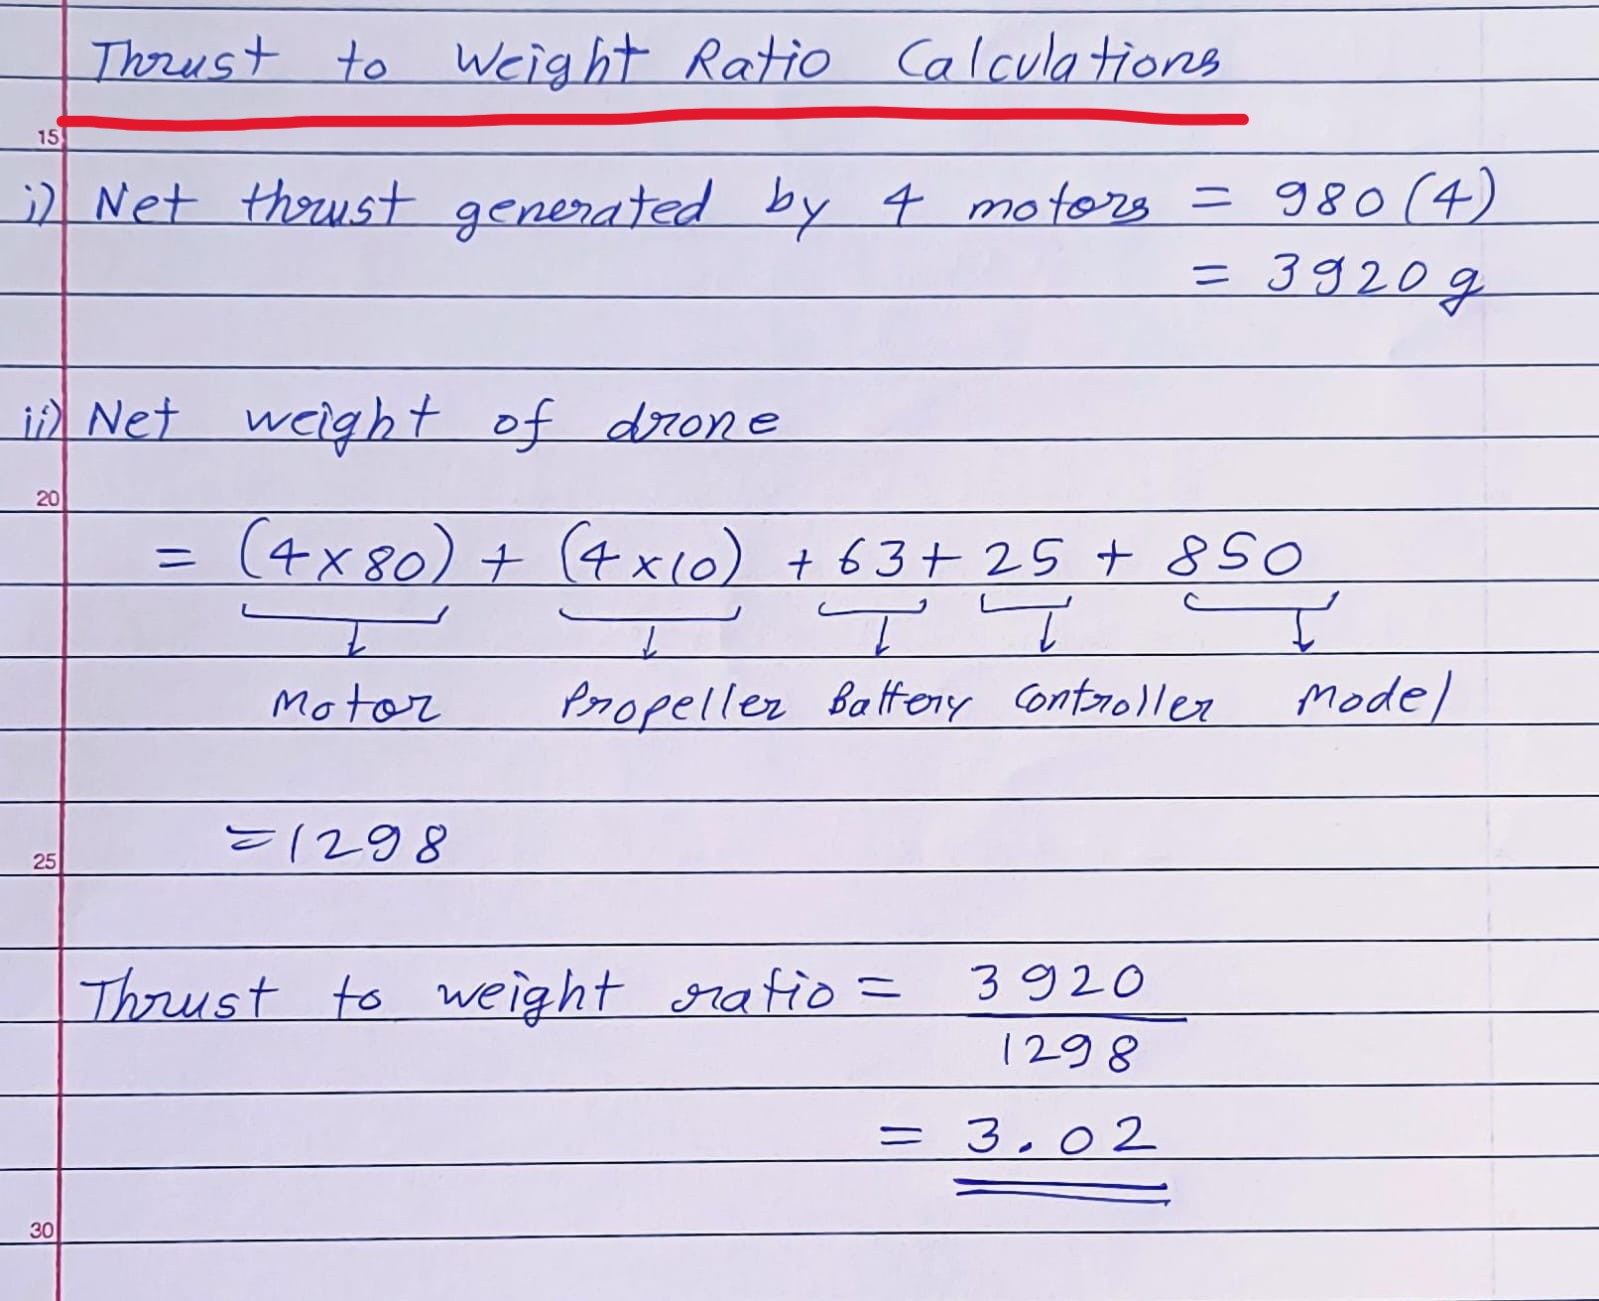 Thrust to Weight Ratio Calculations
15
i) Net thrust generated by 4 motors = 980(4)
= 3920g
ii) Net weight of drone
20
= (4x80) + (4x10) + 63 + 25 + 850
Motor Propeller Battery Controller Model
=1298
25
Thrust to weight ratio = 3920
1298
= 3.02
30